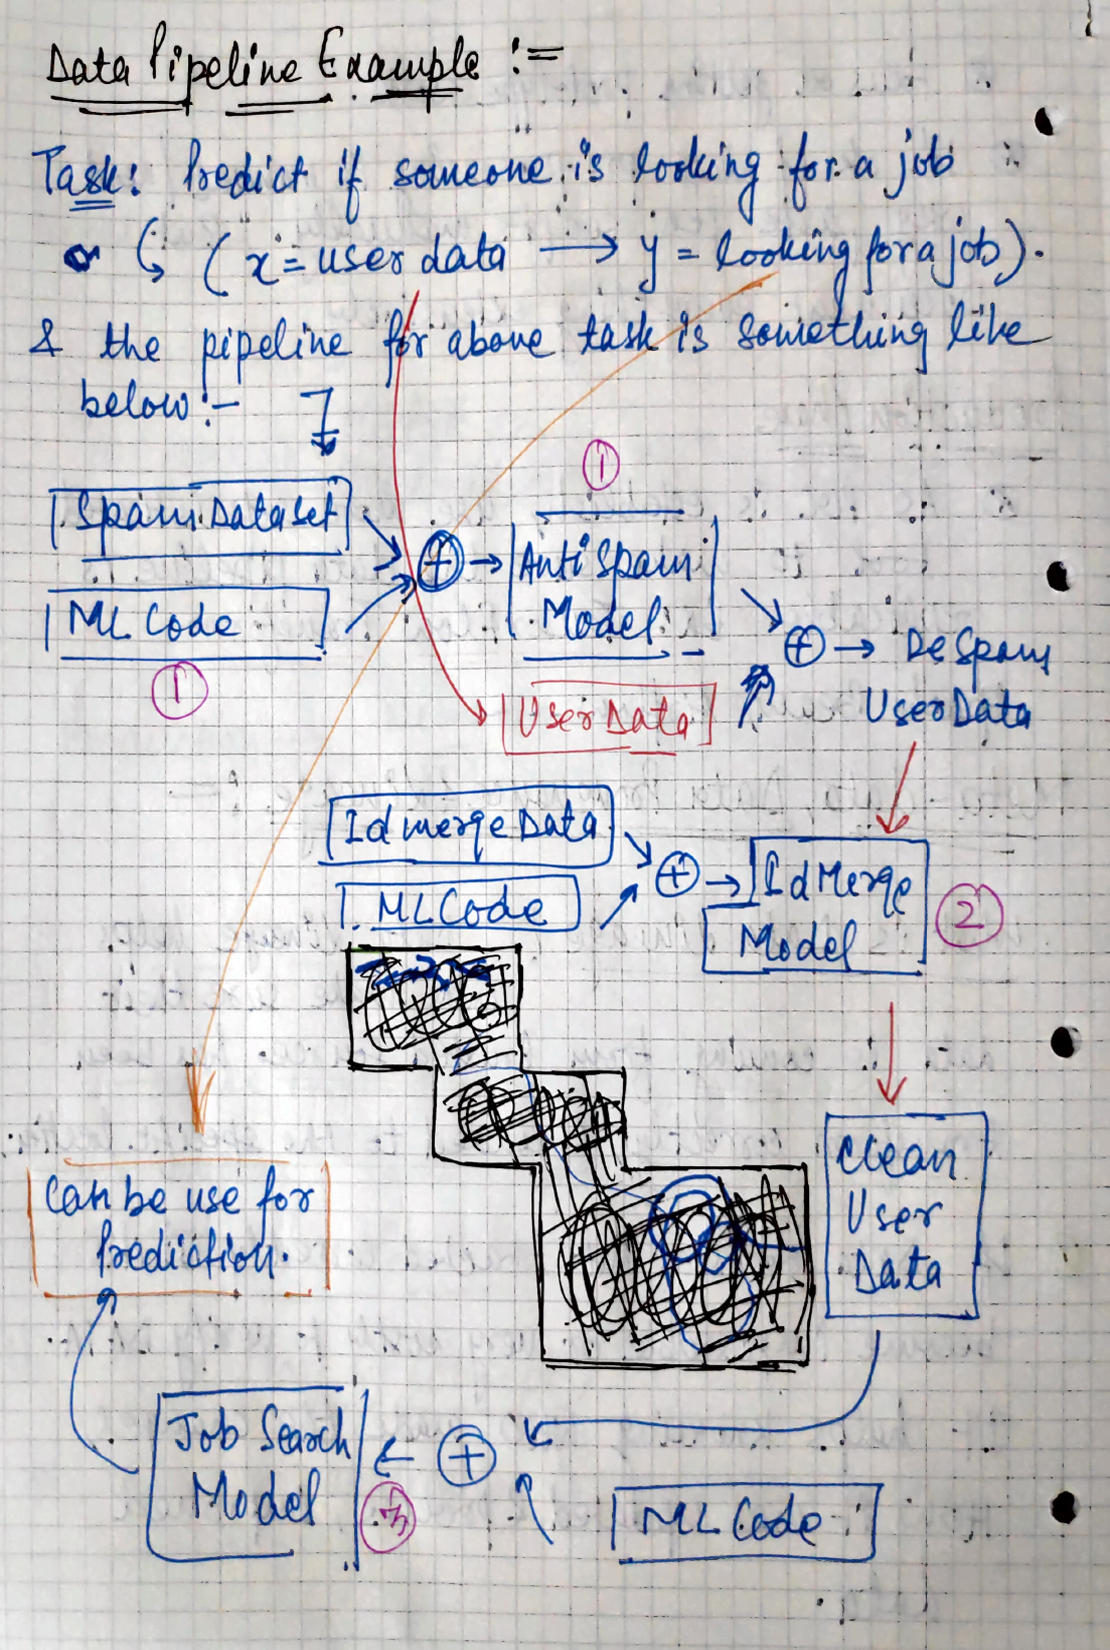 Data Pipeline Example :=
Task: Predict if someone is looking for a job
(x = user data → y = looking for a job).
& the pipeline for above task is something like
below :-
①
Spam DataSet
⊕ → Anti Spam
Model
ML Code
①
⊕ → DeSpam
UserData
UserData
Id merge Data
⊕ → Id Merge
Model
②
ML Code
Clean
User
Data
Can be use for
Prediction.
Job Search
Model
← ⊕
③
ML Code